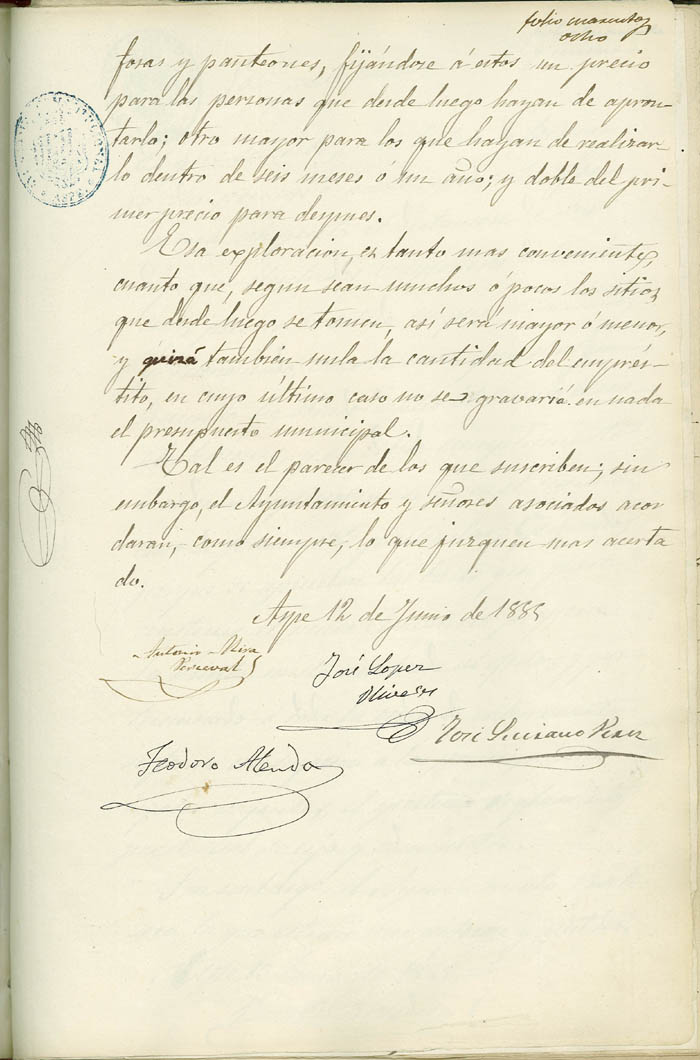 folio cuarenta y
ocho
fosas y panteones, fijándose á estos un precio
para las personas que desde luego hayan de apron-
tarlo; otro mayor para los que hayan de realizar
lo dentro de seis meses ó un año; y doble del pri-
mer precio para despues.
Esa exploracion, es tanto mas conveniente,
cuanto que, segun sean muchos ó pocos los sitios
que desde luego se tomen, así será mayor ó menor,
y quizá también nula la cantidad del emprés-
tito, en cuyo último caso no se gravaria en nada
el presupuesto municipal.
Tal es el parecer de los que suscriben; sin
embargo, el Ayuntamiento y señores asociados acor
daran, como siempre, lo que juzguen mas acerta
do.
Aspe 12 de Junio de 1885
Antonio Mira
Perceval
José Lopez
Olivares
José Luciano Perez
Teodoro Alenda